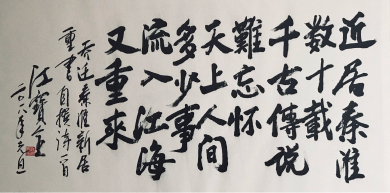 近居秦淮
数十載
千古傳說
難忘怀
天上人间
多少事
流入江海
又重來
乔迁秦淮新居
重書自撰诗一首
二〇一八年元旦